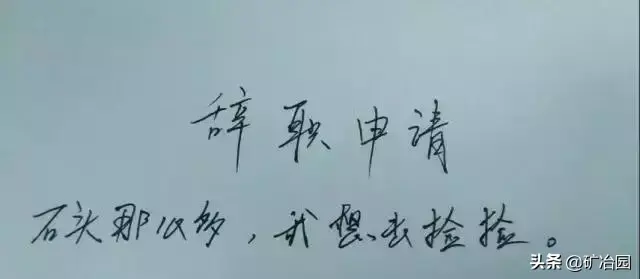 辞职申请
石头那么多，我想去捡捡。
头条 @矿冶园